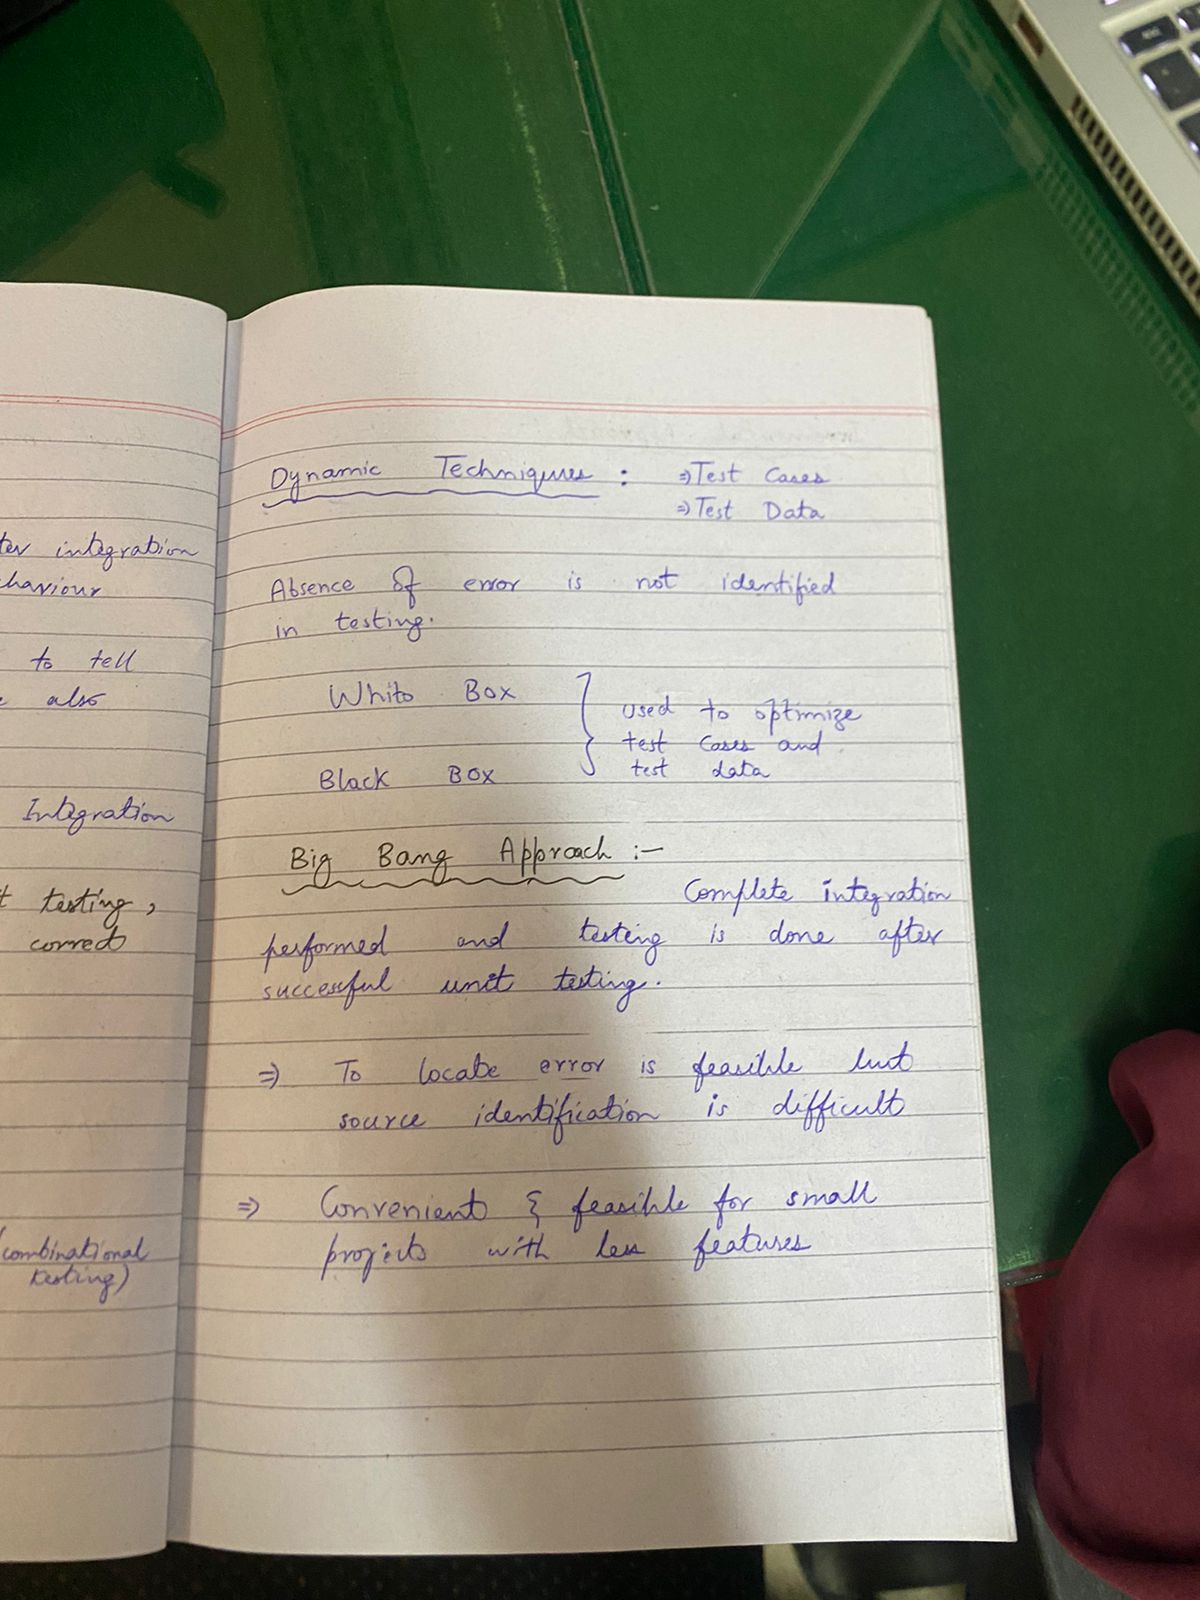 ter integration
haviour
to tell
also
Integration
testing,
correct
(combinational
testing)
Dynamic Techniques : ⇒ Test Cases
⇒ Test Data
Absence of error is not identified
in testing.
White Box
used to optimize
test cases and
test data
Black Box
Big Bang Approach :-
Complete integration
performed and testing is done after
successful unit testing.
⇒ To locate error is feasible but
source identification is difficult
⇒ Convenient & feasible for small
projects with less features